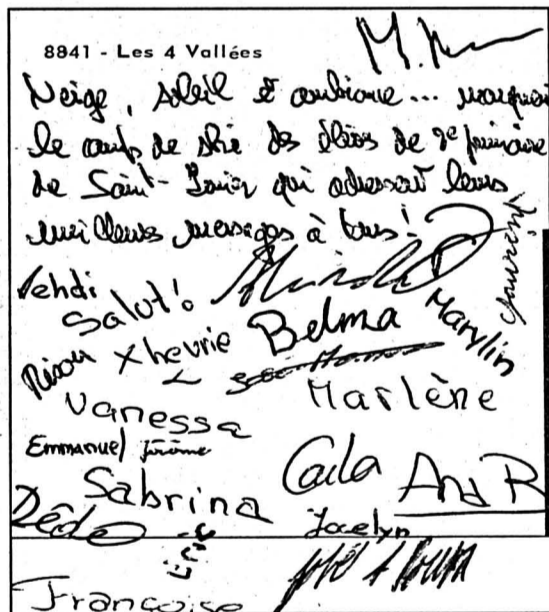 8841 - Les 4 Vallées
Neige, soleil et ambiance... marquent
le camp de ski des élèves de 2e primaire
de Saint- qui adressent leurs
meilleurs messages à tous!
Laurent
Vehdi
Salut!
Marylin
Xhevrie
Belma
Marlène
Vanessa
Emmanuel Jérôme
Carla
Sabrina
Ana R
Dédé
Jocelyn
Eric
Françoise